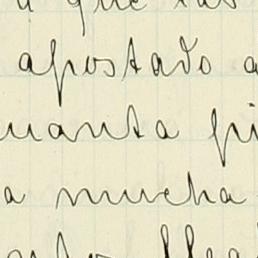 a que las
apostado a
uanta fi
a mucha